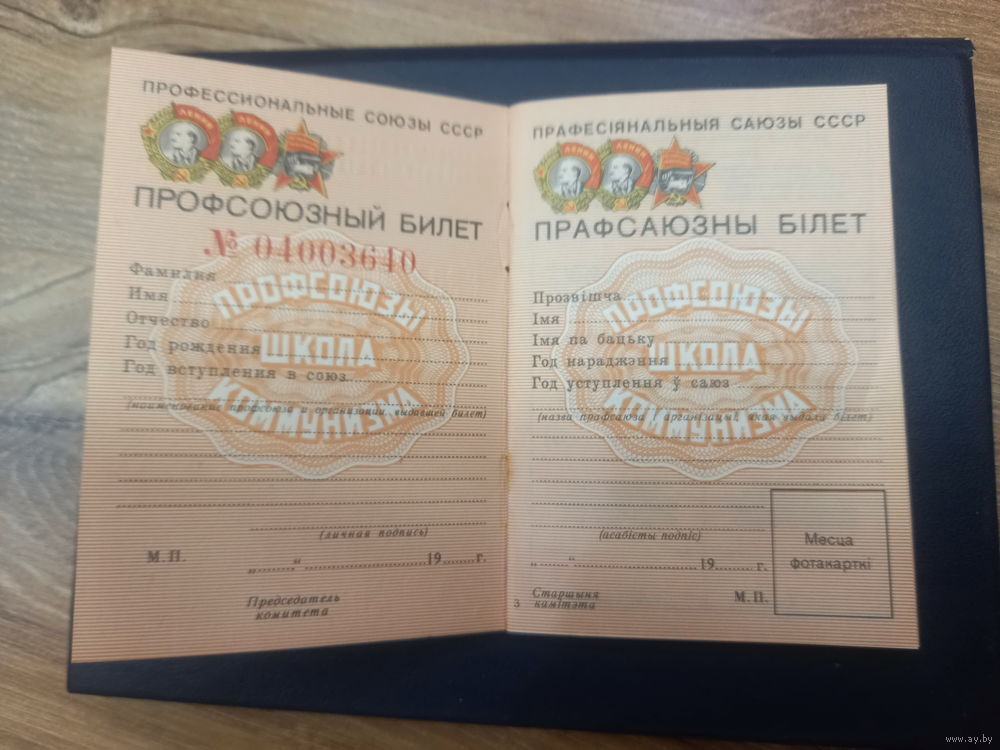 ПРОФЕССИОНАЛЬНЫЕ СОЮЗЫ СССР
ЛЕНИН ЛЕНИН
ПРОФСОЮЗНЫЙ БИЛЕТ
№ 04003640
Фамилия
Имя
Отчество
Год рождения
Год вступления в союз
ПРОФСОЮЗЫ
ШКОЛА
КОММУНИЗМА
(наименование профсоюза и организации, выдавшей билет)
(личная подпись)
М.П. „........“ ........................19.......г.
Председатель
комитета
ПРАФЕСІЯНАЛЬНЫЯ САЮЗЫ СССР
ЛЕНИН ЛЕНИН
ПРАФСАЮЗНЫ БІЛЕТ
Прозвішча
Імя
Імя па бацьку
Год нараджэння
Год уступлення ў саюз
ПРОФСОЮЗЫ
ШКОЛА
КОММУНИЗМА
(назва прафсаюза і арганізацыі, якая выдала білет)
(асабісты подпіс)
„........“ ........................19....... г.
Месца
фотакарткі
3 Старшыня
камітэта
М.П.
www.ay.by